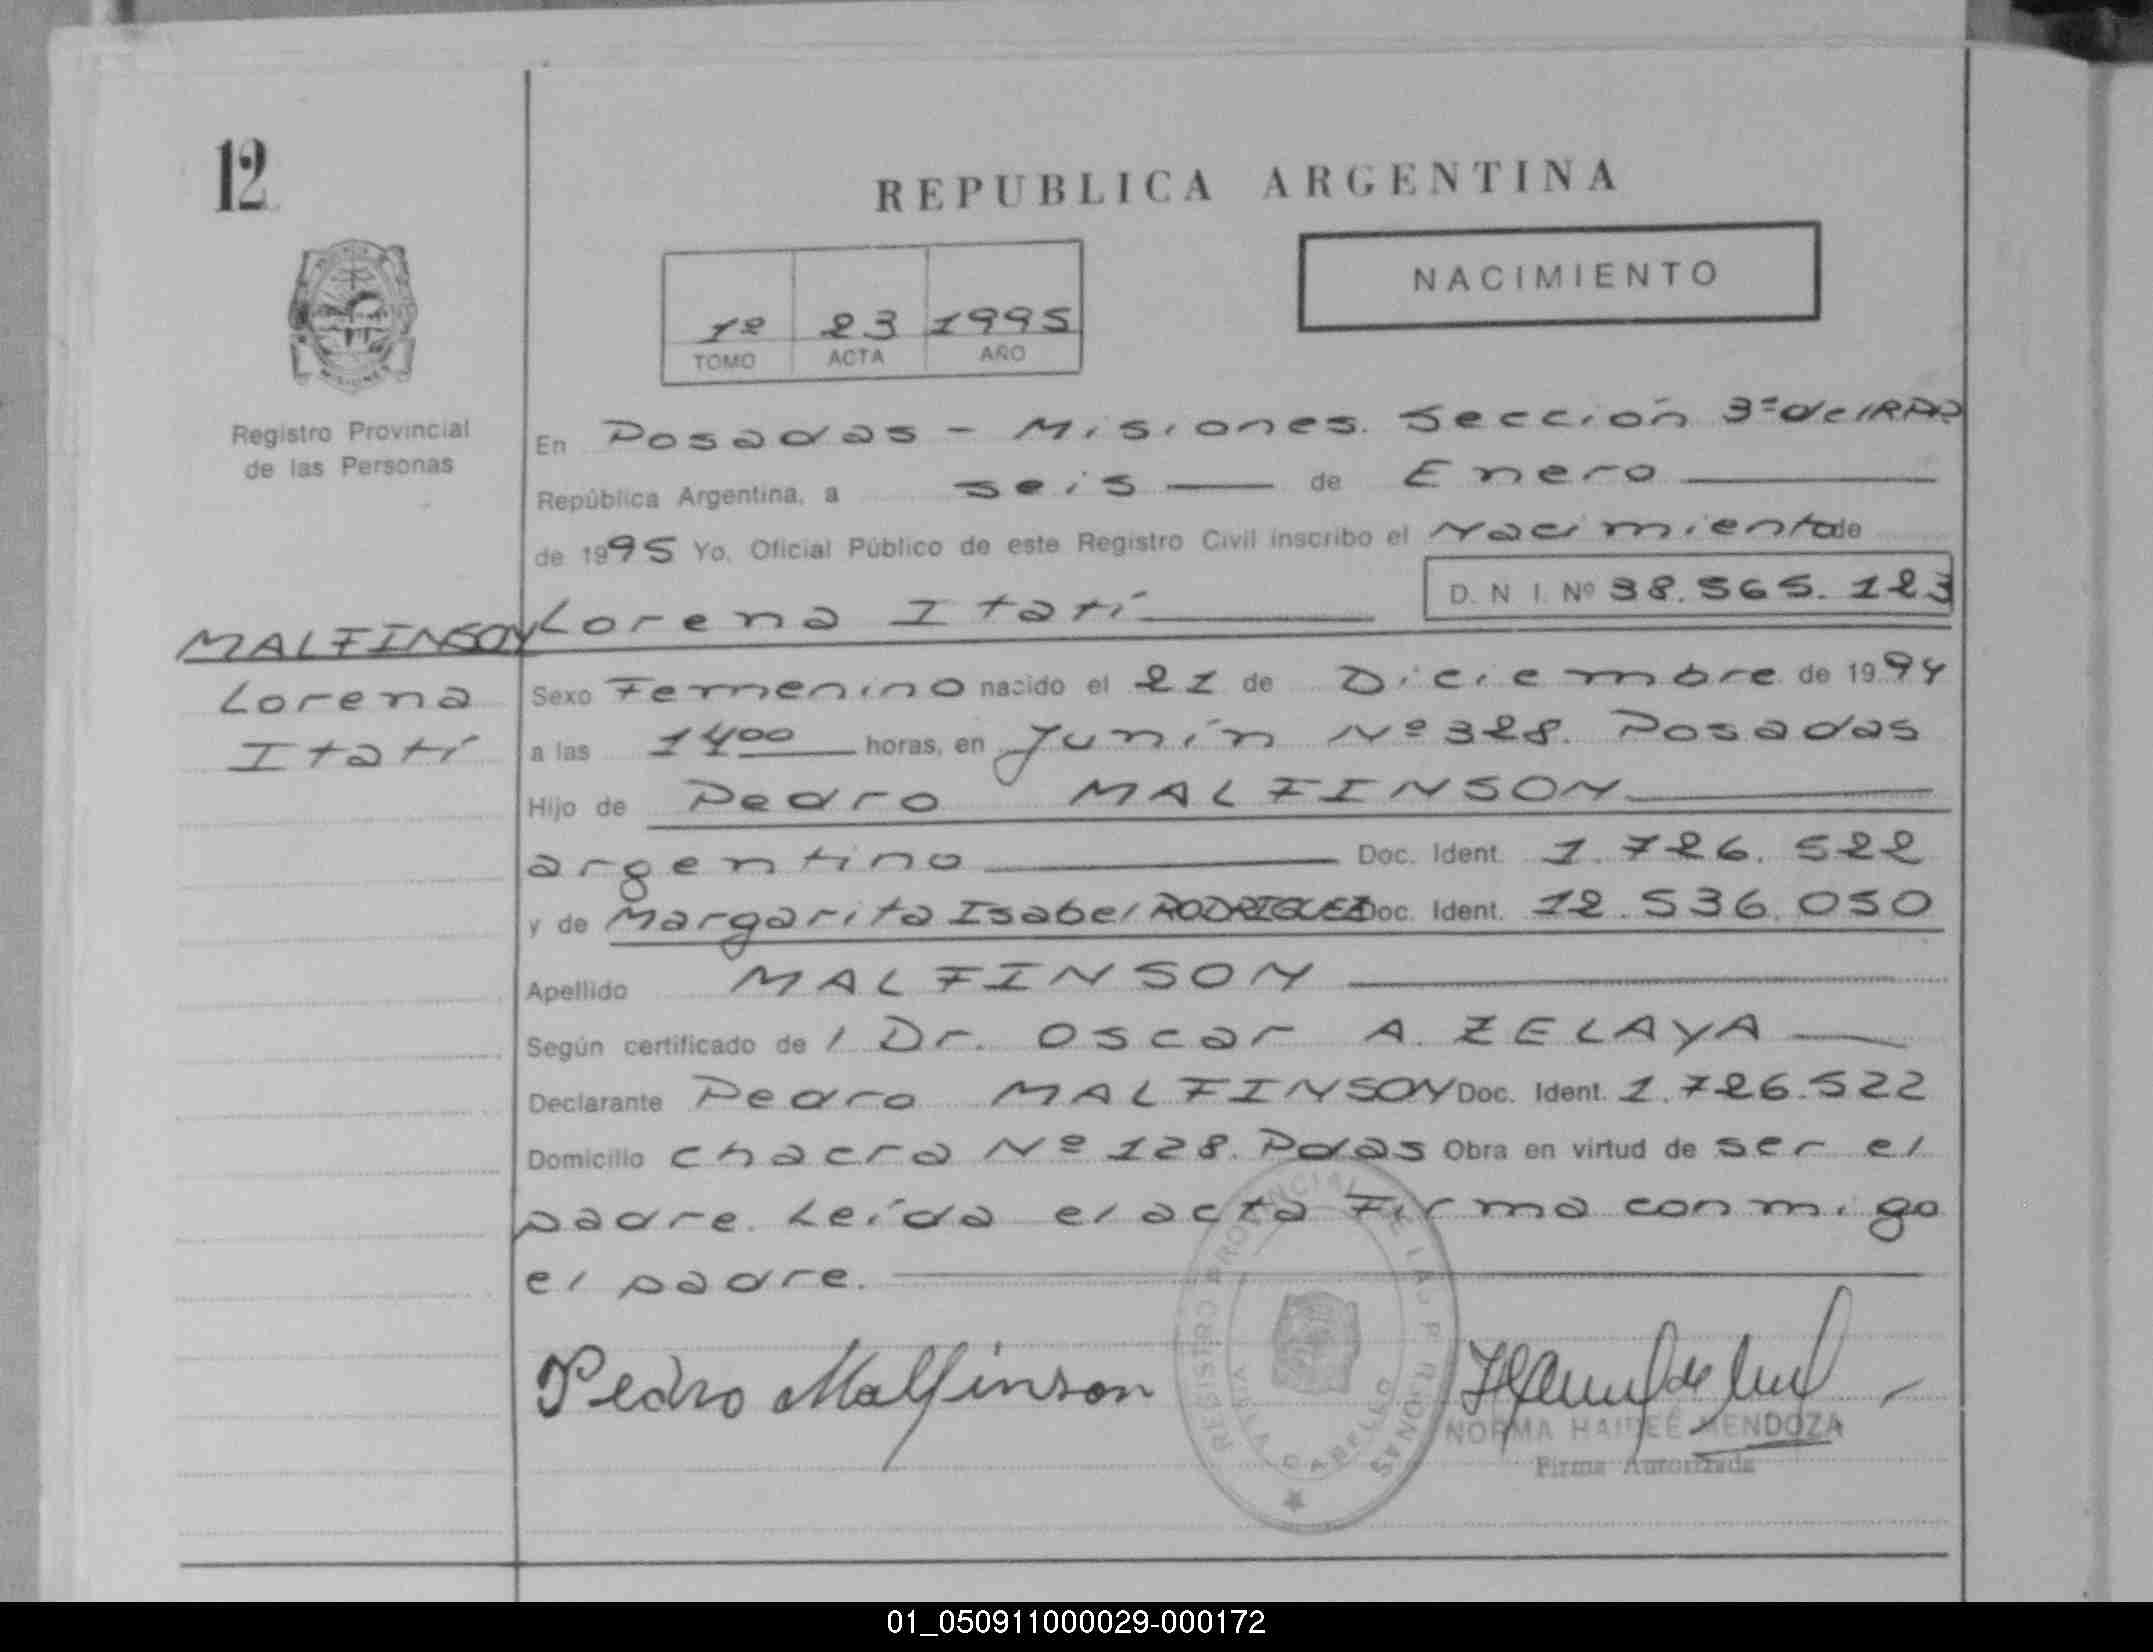 12
REPUBLICA ARGENTINA
NACIMIENTO
1º 23 1995
TOMO ACTA AÑO
Registro Provincial
de las Personas
En Posadas - Misiones. Sección 3ª del RPP
República Argentina, a seis de Enero
de 1995 Yo, Oficial Público de este Registro Civil inscribo el Nacimiento de
Lorena Itatí D. N. I. Nº 38.565.123
MALFINSON
Lorena
Itatí
Sexo Femenino nacido el 21 de Diciembre de 1994
a las 14⁰⁰ horas, en Junín Nº 328. Posadas
Hijo de Pedro MALFINSON
argentino Doc. Ident. 1.726.522
y de Margarita Isabel RODRIGUEZ Doc. Ident. 12.536.050
Apellido MALFINSON
Según certificado de l Dr. Oscar A. ZELAYA
Declarante Pedro MALFINSON Doc. Ident. 1.726.522
Domicilio chacra Nº 128. Pdas Obra en virtud de ser el
padre. Leída el acta Firma conmigo
el padre.
Pedro Malfinson
REGISTRO PROVINCIAL DE LAS PERSONAS
VILLA CABELLO
NORMA HAIDEÉ MENDOZA
Firma Autorizada
01_050911000029-000172